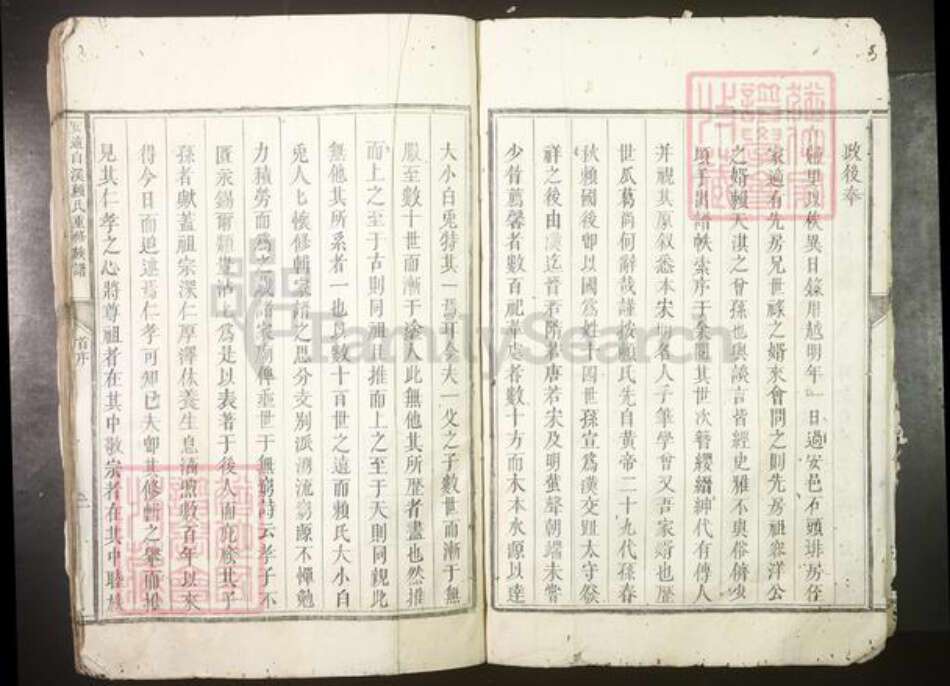 政後奉
異日錄用越明年一日過安邑石頭排房侄
家適有先房兄世祿之婿來會問之則先房祖容洋公
之婿賴天淇之曾孫也與談言皆經史雅不與俗儕少
頃手出譜帙索序于余閱其世次簪纓縉紳代有傳人
并視其原叙悉本宋明名人手筆學曾又吾家婿也歷
世瓜葛尚何辭哉謹按賴氏先自黃帝二十九代孫春
秋賴國後卽以國為姓十四世孫宣為漢交趾太守發
祥之後由漢迄晉若隋若唐若宋及明蜚聲朝端未嘗
少替薦馨者數百祀萃處者數十方而木本水源以達
大小白兎特其一焉耳今夫一父之子數世而漸于無
服至數十世而漸于塗人此無他其所歷者盡也然推
而上之至于古則同祖且推而上之至于天則同親此
無他其所系者一也以數十百世之遠而賴氏大小白
兎人上懷修輯家譜之思分支別派溯流窮源不憚勉
力積勞而為之
匱永錫爾類是以表著于後人而庇廕其子
孫者獻蓋祖宗深仁厚澤休養生息數百年以來
得今日而追遠焉仁孝可知已大卽其修輯之舉而推
見其仁孝之心將尊祖者在其中敬宗者在其中聯族
安遠白溪賴氏重修族譜
首序
FamilySearch